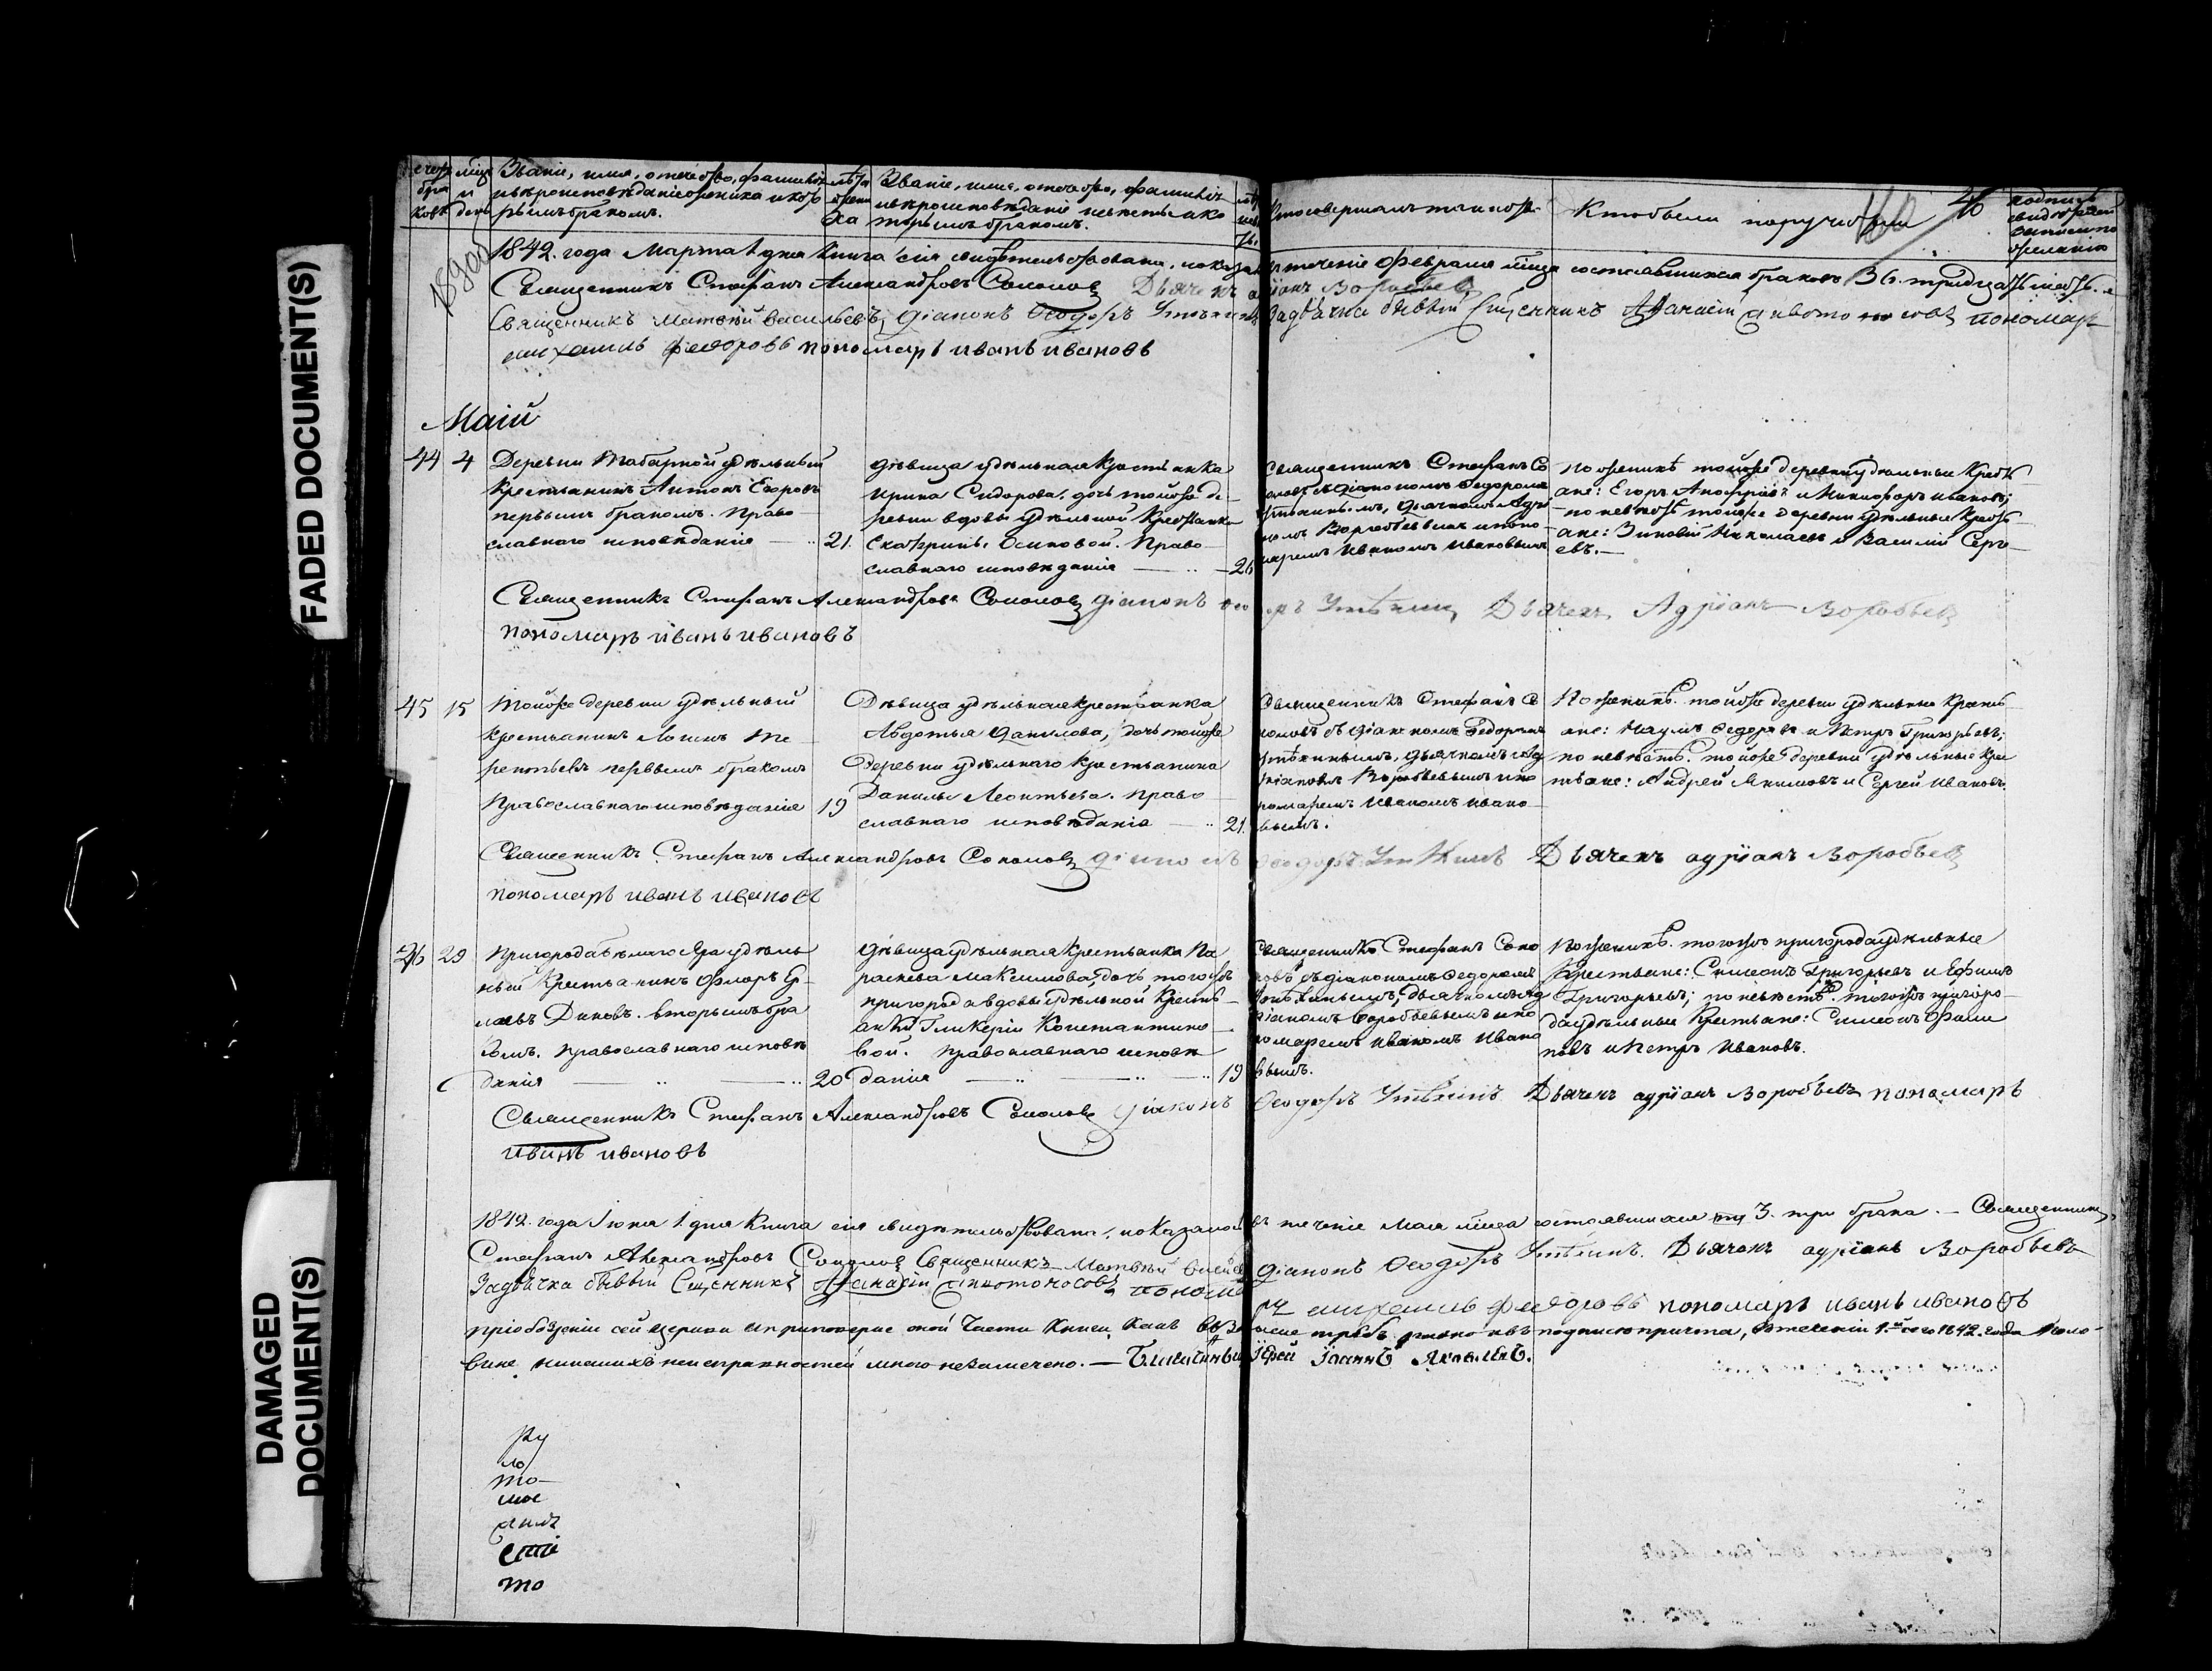 FADED DOCUMENT(S)
DAMAGED
DOCUMENT(S)
Званіе, имя, отечество, фамилія
и вѣроисповѣданіе жениха и кото
рымъ бракомъ.
лѣта
жени
ха
Званіе, имя, отечество, фамилія
и вѣроисповѣданіе невѣсты и ко
торымъ бракомъ.
Кто совершалъ таинство
Кто были поручители
46
1842. года Марта 1 дня Книга сія свидѣтельствована, по
въ теченіе Февраля мѣсяца состоявшихся браковъ 36. тридцать шесть.
Священникъ Стефанъ Александровъ Соколовъ Дьячекъ Адріанъ Воробьевъ
Священникъ Матвѣй Васильевъ, діаконъ Ѳеодоръ Утѣхинъ Задвѣчна бывый Сщенникъ Афанасій пономарь
михаилъ федоровъ пономарь иванъ ивановъ
Маій
44 4
Деревни удѣльный
Крестьянинъ Антонъ Егоровъ
первымъ бракомъ. Право
славнаго исповѣданія — 21.
дѣвица удѣльная Крестьянка
Ирина Сидорова, дочь тойже де
ревни вдовы удѣльной Крестьянки
Екатерины Осиповой. Право
славнаго исповѣданія — 26
Священникъ Стефанъ Со
коловъ съ діакономъ Ѳедоромъ
Утѣхинымъ, дьячкомъ Адрі
номъ Воробьевымъ и поно
маремъ Иваномъ Ивановымъ
По женихѣ тойже деревни удѣльные Крестья
ане: Егоръ и Никифоръ Ивановъ;
по невѣстѣ тойже деревни удѣльные Кресть
ане: Зиновій Николаевъ и Василій Серге
евъ.—
Священникъ Стефанъ Александровъ Соколовъ діаконъ Ѳеодоръ Утѣхинъ Дьячекъ Адріанъ Воробьевъ
пономарь иванъ ивановъ
45 15
Тойже деревни удѣльный
крестьянинъ Логинъ Те
рентьевъ первымъ бракомъ
Православнаго исповѣданія 19
Дѣвица удѣльная крестьянка
Авдотья Данилова, дочь тойже
Деревни удѣльнаго крестьянина
Данилы Леонтьева. Право
славнаго исповѣданія — 21.
Священникъ Стефанъ Со
коловъ съ діакономъ Ѳедоромъ
Утѣхинымъ, дьячкомъ Ад
ріаномъ Воробьевымъ и по
номаремъ Иваномъ Ивано
вымъ.
По женихѣ тойже деревни удѣльные Кресть
ане: Наумъ Ѳедоровъ и Петръ Григорьевъ;
по невѣстѣ тойже деревни удѣльные Крес
тьане: Андрей Акимовъ и Сергей Ивановъ.
Священникъ Стефанъ Александровъ Соколовъ діаконъ Ѳеодоръ Утѣхинъ Дьячекъ адріанъ Воробьевъ
пономарь иванъ ивановъ
46 29
Пригорода Бѣлаго Яра удѣль
ный Крестьянинъ Флоръ Ер
Диковъ. вторымъ бра
комъ. православнаго исповѣ
данія — 20
дѣвица удѣльная Крестьянка Па
раскева Максимова, дочь тогожъ
пригорода вдовы удѣльной Кресть
анки Гликеріи Константино
вой. православнаго исповѣ
данія — 19
Священникъ Стефанъ Соко
ловъ съ діакономъ Ѳедоромъ
Утѣхинымъ, дьячкомъ Ад
ріаномъ Воробьевымъ и по
номаремъ Иваномъ Ивано
вымъ.
По женихѣ тогожъ пригорода удѣльные
Крестьяне: Симеонъ Григорьевъ и Ефимъ
Григорьевъ; по невѣстѣ тогожъ пригоро
да удѣльные Крестьяне: Симеонъ
и Петръ Ивановъ.
Священникъ Стефанъ Александровъ Соколовъ діаконъ Ѳеодоръ Утѣхинъ Дьячекъ адріанъ Воробьевъ пономарь
иванъ ивановъ
1842. года Іюня 1. дня Книга сія свидѣтельствована, показано въ теченіе Мая мѣсяца состоявшихся 3. три брака. — Священникъ
Стефанъ Александровъ Соколовъ Священникъ Матвѣй діаконъ Ѳеодоръ Утѣхинъ. Дьячекъ адріанъ Воробьевъ
Задвѣчна бывый Сщенникъ Афанасій пономарь михаилъ федоровъ пономарь иванъ ивановъ
при сей церкви и при повѣркѣ оной части книги, подписью причта, въ теченіи 1.й сего 1842. года поло
винѣ никакихъ неисправностей мною не замѣчено. — Іерей Іоаннъ Яковлевъ.
Ру
ло
то